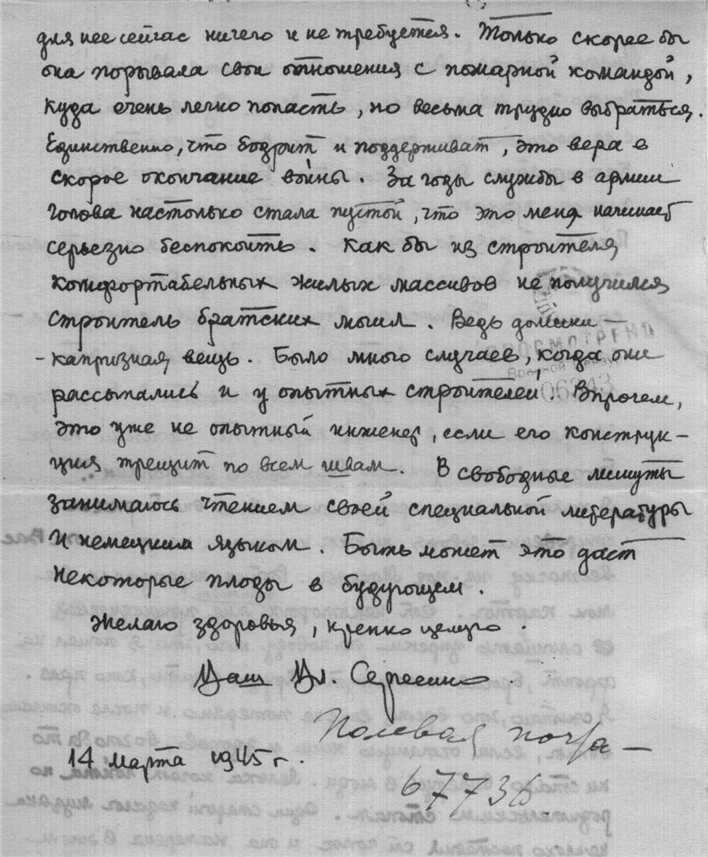 для нее сейчас ничего и не требуется. Только скорее бы
она порывала свои отношения с пожарной командой,
куда очень легко попасть, но весьма трудно выбраться.
Единственно, что бодрит и поддерживат, это вера в
скорое окончание войны. За годы службы в армии
голова настолько стала пустой, что это меня начинает
серьезно беспокоить. Как бы из строителя
комфортабельных жилых массивов не получился
строитель братских могил. Ведь домики –
- капризная вещь. Было много случаев, когда они
ПРОСМОТРЕНО
рассыпались и у опытных строителей. Впрочем,
06243
это уже не опытный инженер, если его конструк-
ция трещит по всем швам. В свободные минуты
занимаюсь чтением своей специальной литературы
и немецким языком. Быть может это даст
некоторые плоды в будующем.
Желаю здоровья, крепко целую.
Ваш Вл.
Полевая почта –
14 марта 1945 г.